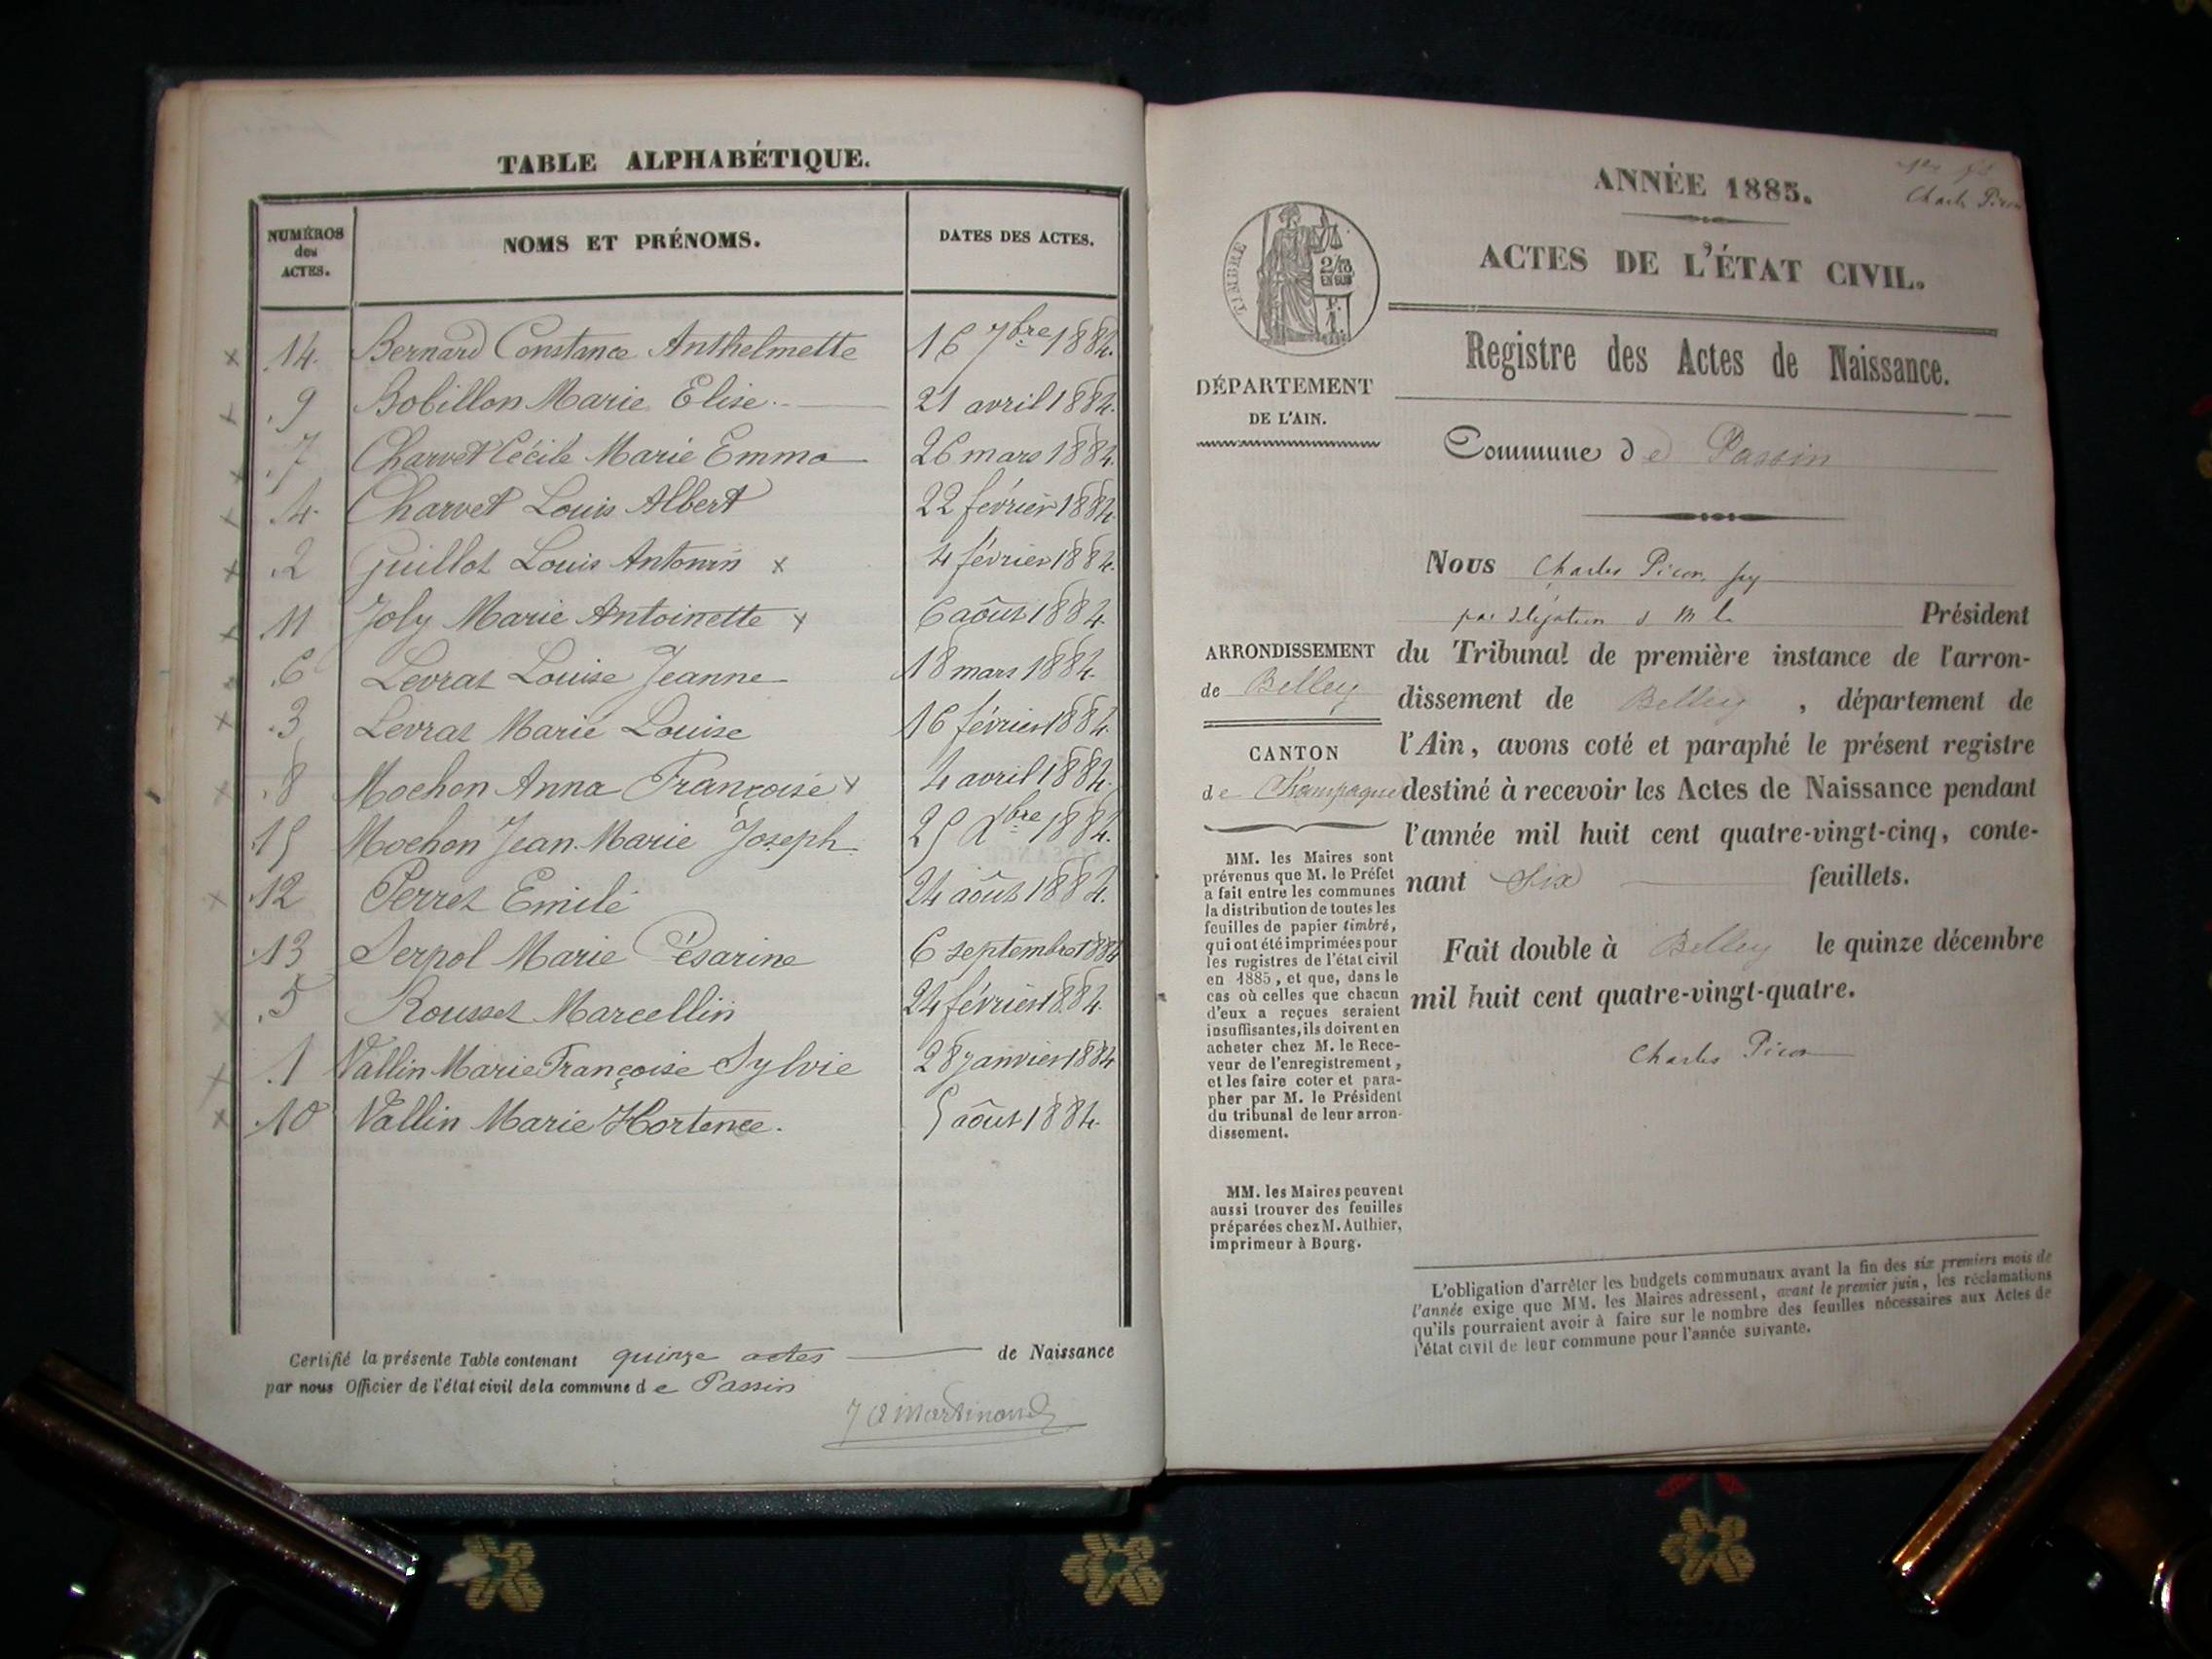 TABLE ALPHABÉTIQUE.
NUMÉROS des ACTES.
NOMS ET PRÉNOMS.
DATES DES ACTES.
x 14. Bernard Constance Anthelmette 16 7bre 1884.
x 9 Bobillon Marie Elise. 21 avril 1884.
x 7 Charvet Cécile Marie Emma 26 mars 1884.
x 4 Charvet Louis Albert 22 février 1884.
x 2 Guillot Louis Antonin x 4 février 1884.
x 11 Joly Marie Antoinette x 6 août 1884.
x 6 Levrat Louise Jeanne 18 mars 1884.
x 3 Levrat Marie Louise 16 février 1884.
x 8 Mochon Anna Françoise x 4 avril 1884.
15 Mochon Jean Marie Joseph 25 Xbre 1884.
x 12 Perret Emile 24 août 1884.
13 Serpol Marie Césarine 6 septembre 1884
x 5 Rousset Marcellin 24 février 1884.
x 1 Vallin Marie Françoise Sylvie 28 janvier 1884
x 10 Vallin Marie Hortence. 5 août 1884.
Certifié la présente Table contenant quinze actes de Naissance
par nous Officier de l'état civil de la commune de Passin
Martinand
Charles Picon
ANNÉE 1885.
ACTES DE L'ÉTAT CIVIL.
TIMBRE
2/10
EN SUS
Registre des Actes de Naissance.
DÉPARTEMENT
DE L'AIN.
Commune de Passin
Nous Charles Picon, juge
par délégation de M le Président
du Tribunal de première instance de l'arron-
dissement de Belley, département de
l'Ain, avons coté et paraphé le présent registre
destiné à recevoir les Actes de Naissance pendant
l'année mil huit cent quatre-vingt-cinq, conte-
nant Six feuillets.
Fait double à Belley le quinze décembre
mil huit cent quatre-vingt-quatre.
Charles Picon
ARRONDISSEMENT
de Belley
CANTON
de Champagne
MM. les Maires sont
prévenus que M. le Préfet
a fait entre les communes
la distribution de toutes les
feuilles de papier timbré,
qui ont été imprimées pour
les registres de l'état civil
en 1885, et que, dans le
cas où celles que chacun
d'eux a reçues seraient
insuffisantes, ils doivent en
acheter chez M. le Rece-
veur de l'enregistrement,
et les faire coter et para-
pher par M. le Président
du tribunal de leur arron-
dissement.
MM. les Maires peuvent
aussi trouver des feuilles
préparées chez M. Authier,
imprimeur à Bourg.
L'obligation d'arrêter les budgets communaux avant la fin des six premiers mois de
l'année exige que MM. les Maires adressent, avant le premier juin, les réclamations
qu'ils pourraient avoir à faire sur le nombre des feuilles nécessaires aux Actes de
l'état civil de leur commune pour l'année suivante.